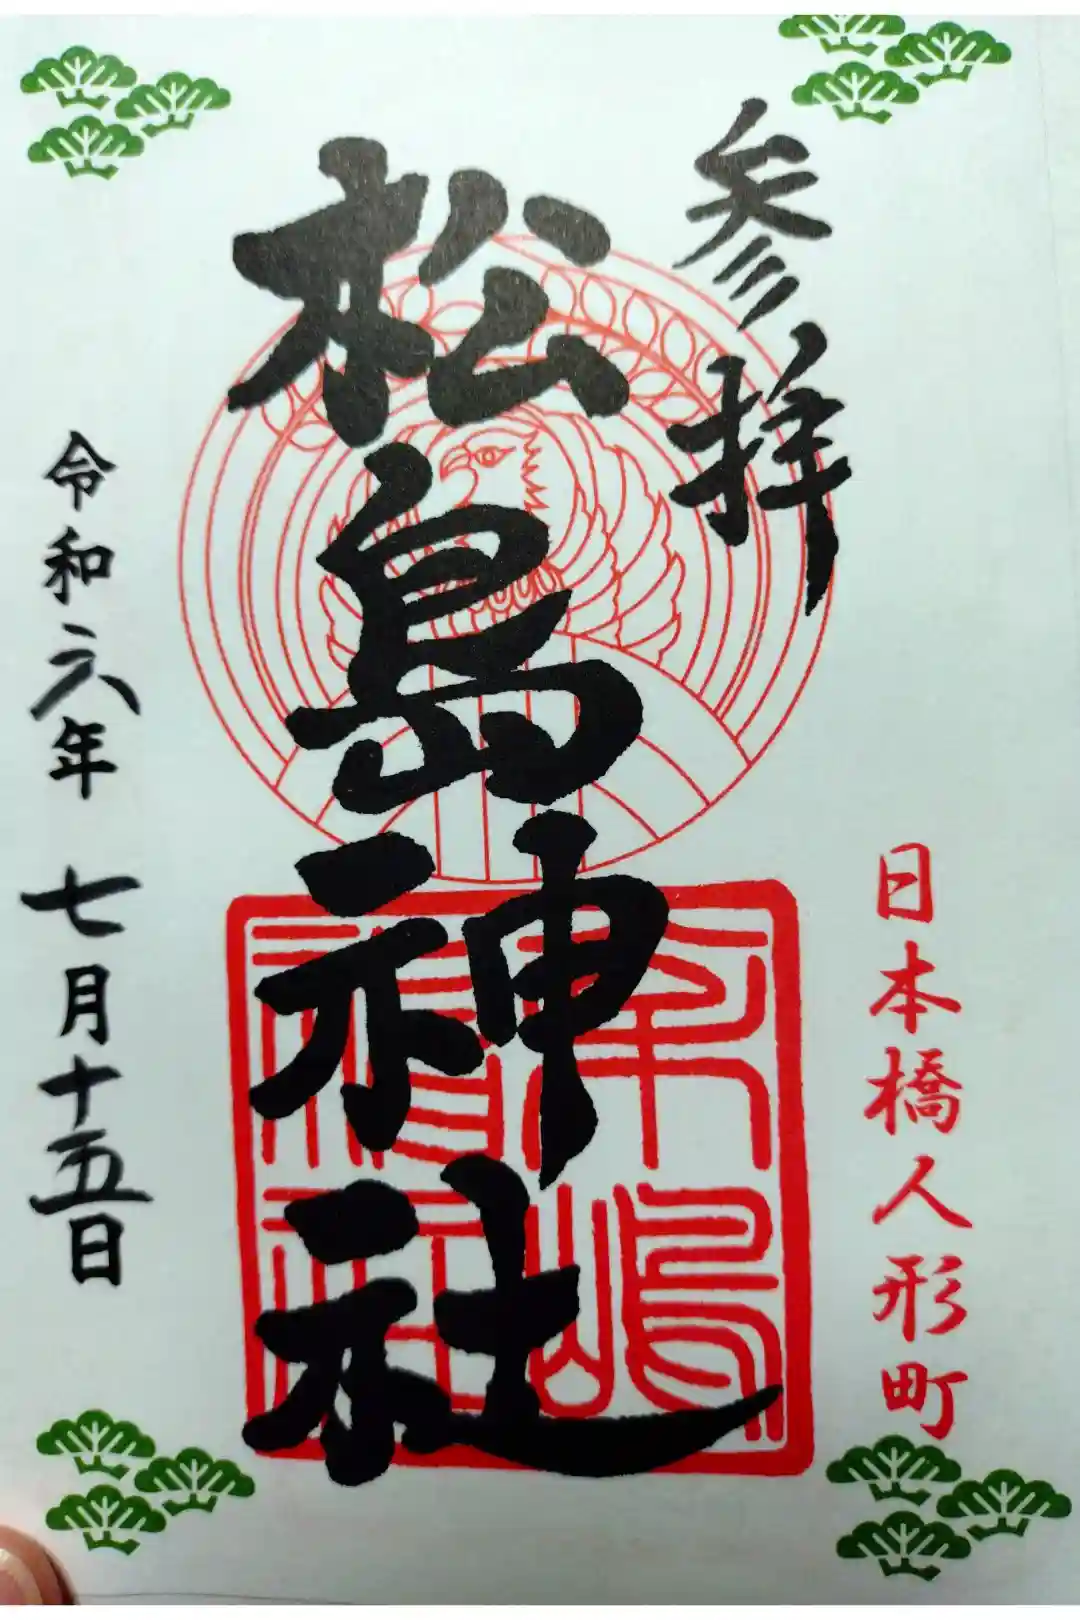 参拝
日本橋人形町
松島神社
令和六年 七月十五日